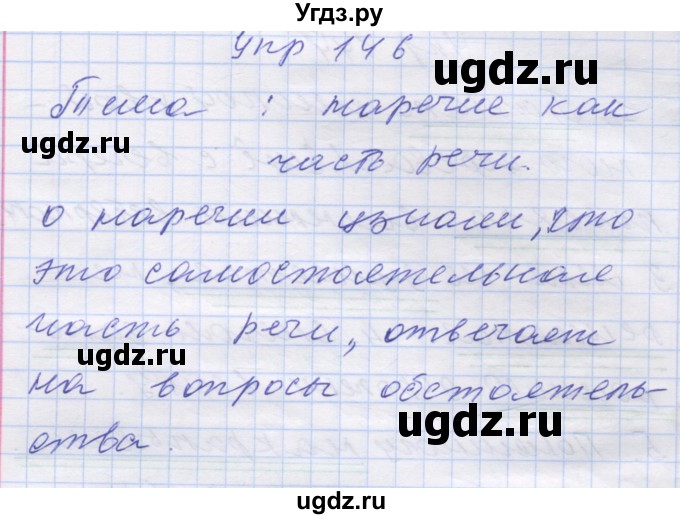 Угдз.ру
упр 146
ugdz.ru
Тема : наречие как
ugdz.ru
часть речи.
ugdz.ru
о наречии узнали, что
это самостоятельная
часть речи, отвечает
ugdz.ru
на вопросы обстоятель-
ugdz.ru
ства.
ugdz.ru